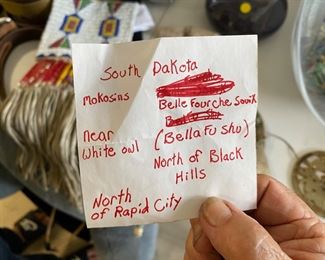 South Dakota
Mokosins
Belle Fourche
Near
White owl
(Bella Fu Shu)
North of Black
Hills
North
of Rapid City